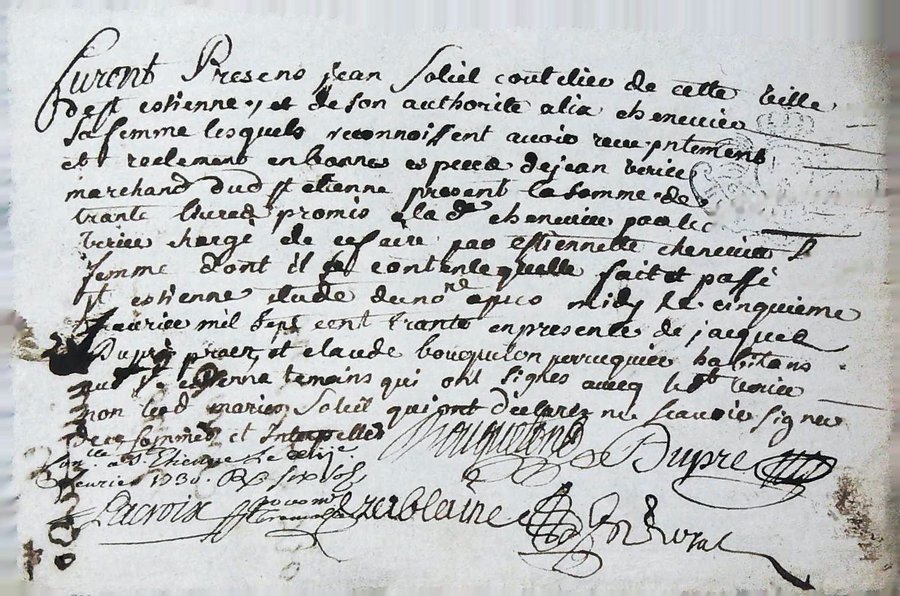 furent Presens jean Soleil coutelier de cette ville
de st estienne, et de son authorité chenevier
sa femme lesquels reconnoissent avoir receu
et reelement en bonnes especes de jean verier
marchand dud st etienne present la somme de
trante livres promis a la de chenevier par le
verier chargé de ce faire par estiennette chenevier s
femme dont il se contente quelle fait et passé
st estienne etude du no re apres midy le cinquieme
feuvrier mil sept cent trante en presence de jacques
Dupré et claude bouquelon perruquier habitans
aud st estienne temoins qui ont signes avecq led verier
non led maries Soleil qui ont declarez ne scavoir signer
de ce sommes et Interpelles
Bouquelond Dupre
a St Etienne Le
fevrier 1730. six sols
Lacroix